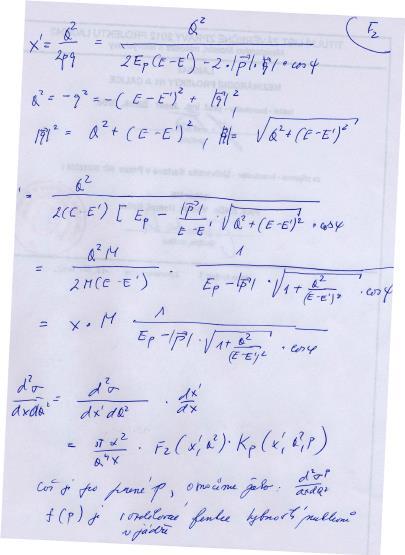 F₂
x' = Q²/2pq = Q²/(2E_p(E-E') - 2·|p⃗|·|q⃗|·cosφ)
Q² = -q² = -(E-E')² + |q⃗|²,
|q⃗|² = Q² + (E-E')², |q⃗| = √(Q² + (E-E')²)
= Q²/(2(E-E')[E_p - |p⃗|/(E-E')·√(Q² + (E-E')²)·cosφ
= Q²M/(2M(E-E')) · 1/(E_p - |p⃗|·√(1 + Q²/(E-E')²)·cosφ)
= x · M · 1/(E_p - |p⃗|·√(1 + Q²/(E-E')²)·cosφ)
d²σ/dxdQ² = d²σ/dx'dQ² · dx'/dx
= πα²/Q⁴x · F₂(x', Q²) · K_p(x', Q², p)
Což je pro p, označme jako: d²σᵖ/dxdQ²
f(p) je funkce hybností nukleonů
v jádře